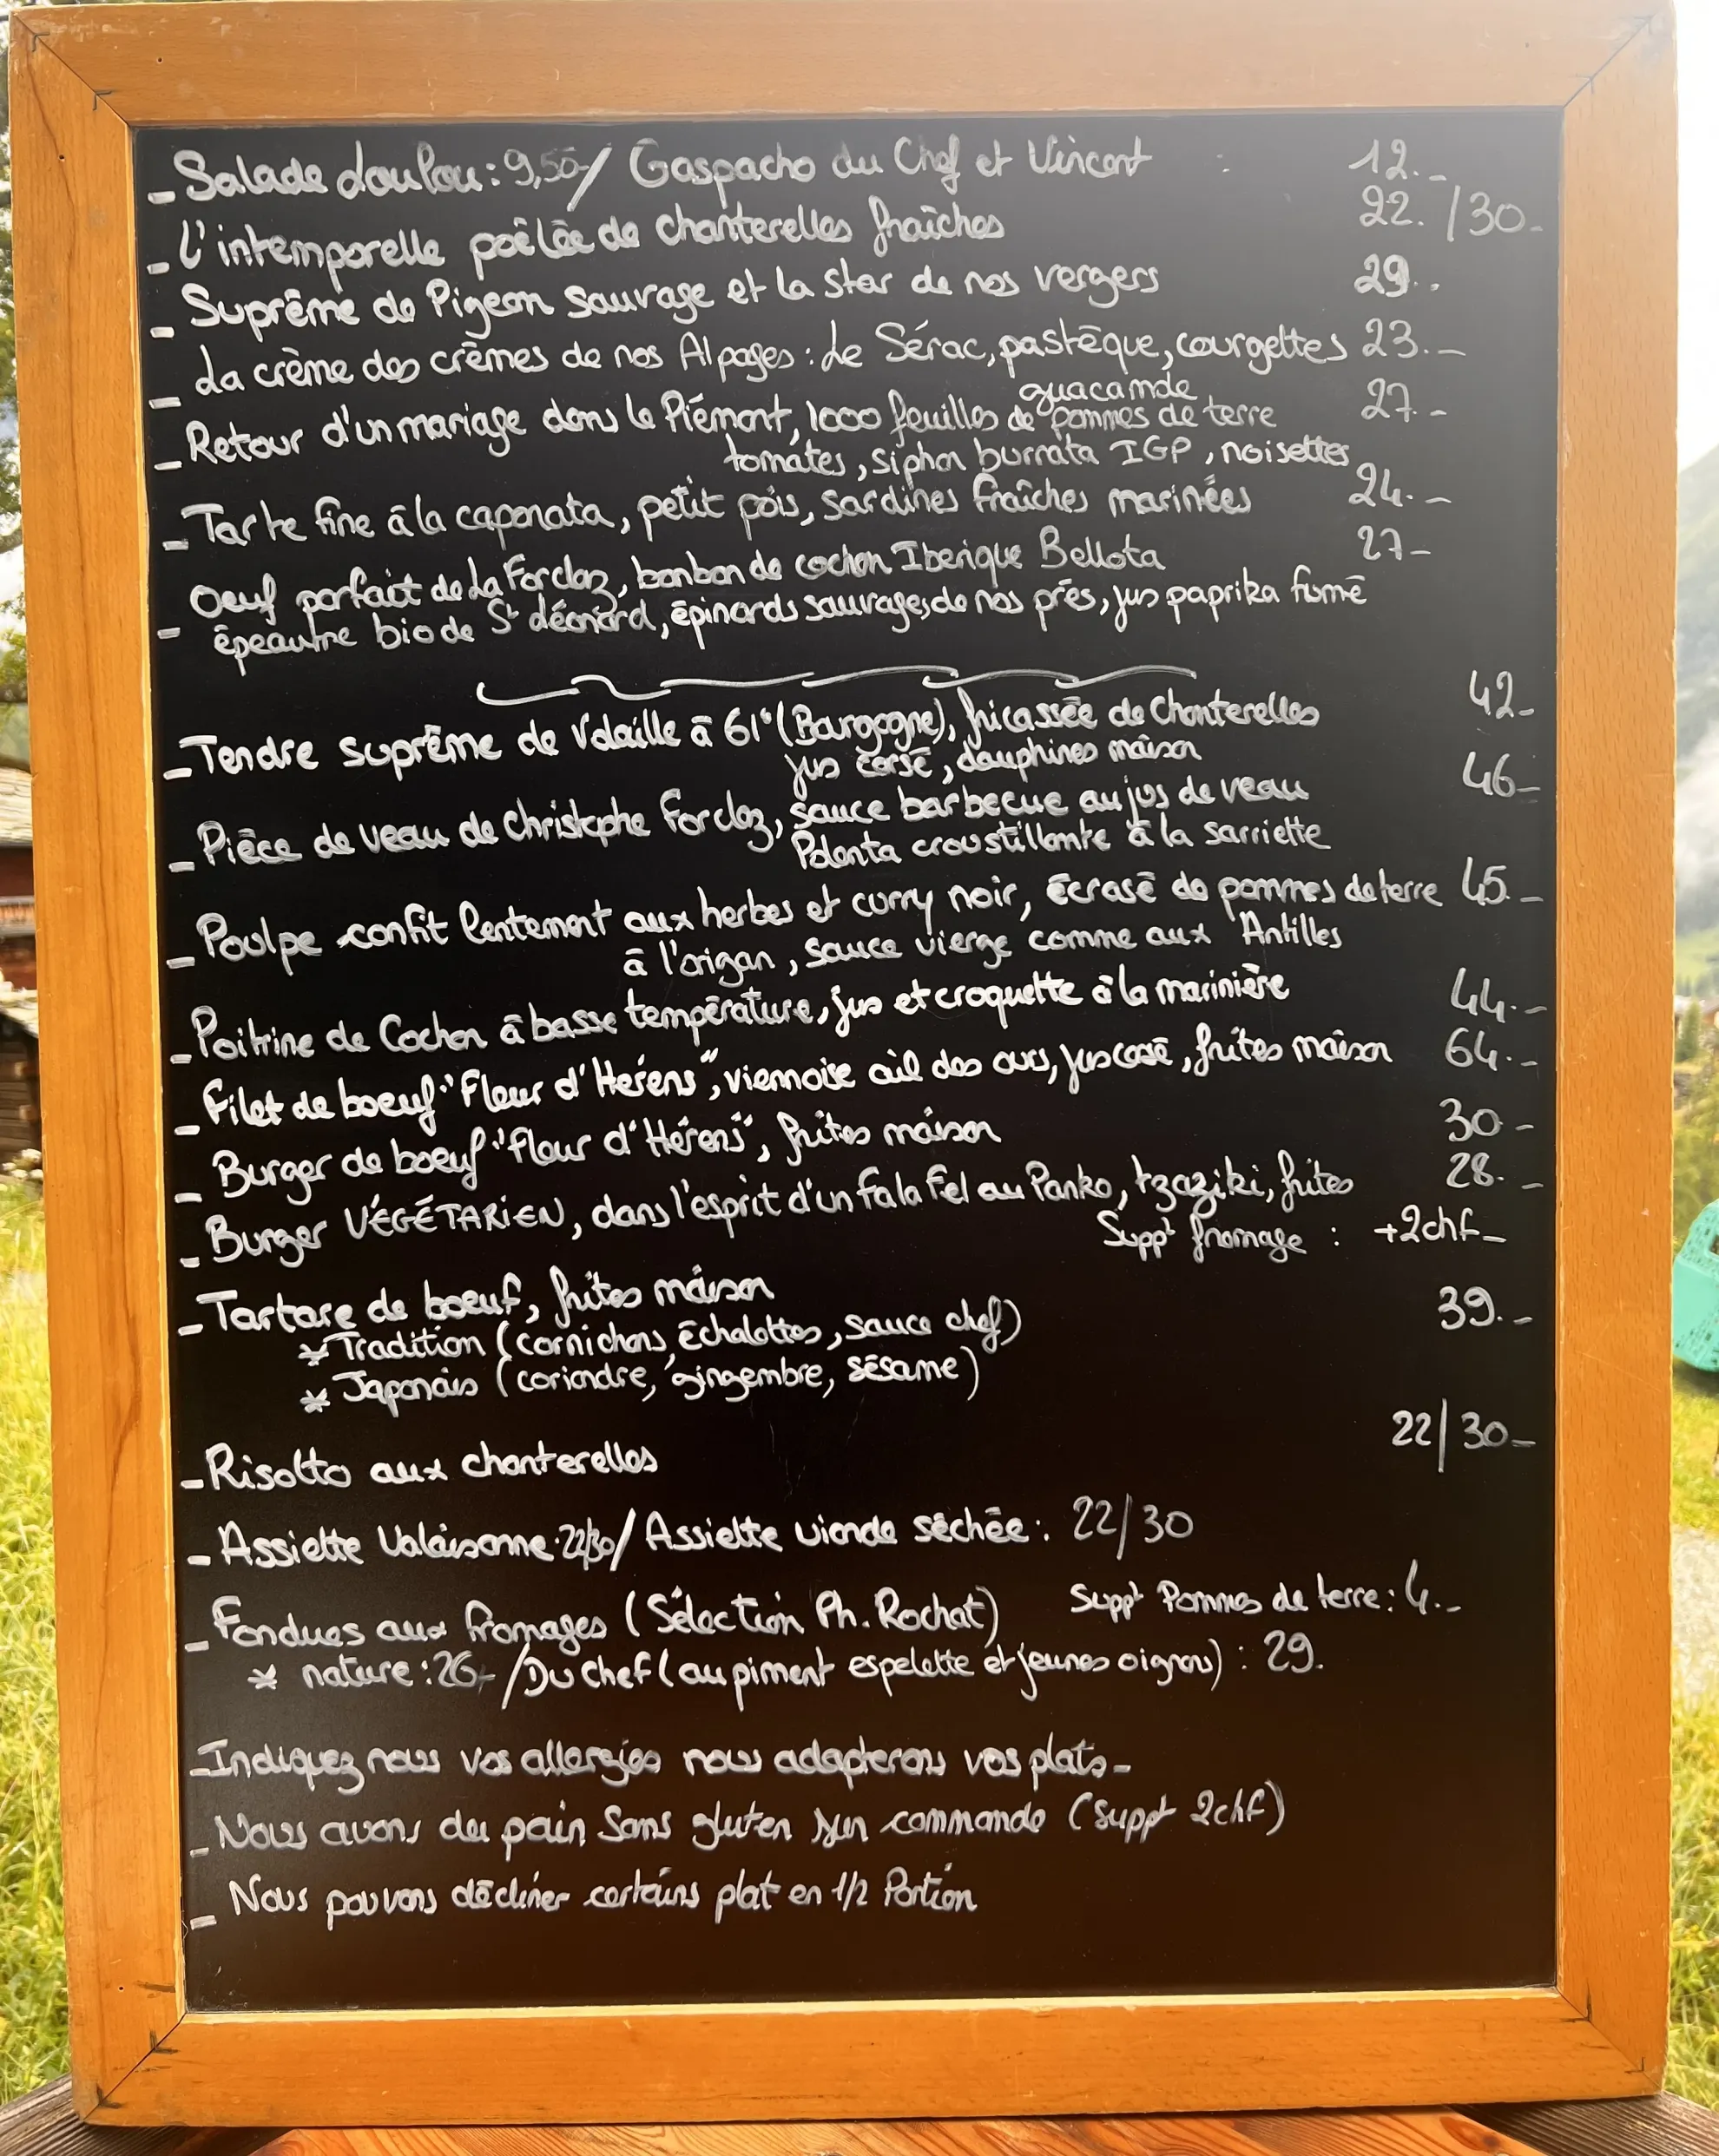 - Salade Loulou : 9,50 / Gaspacho du Chef et Vincent : 12.-
- L'intemporelle poêlée de chanterelles fraîches 22. / 30-
- Suprême de Pigeon sauvage et la star de nos vergers 29..
- La crème des crèmes de nos Alpages : Le Sérac, pastèque, courgettes 23.-
guacamole
- Retour d'un mariage dans le Piémont, 1000 feuilles de pommes de terre 27.-
tomates, siphon burrata IGP, noisettes
- Tarte fine à la caponata, petit pois, sardines fraîches marinées 24.-
- Oeuf parfait de La Forclaz, bonbon de cochon Iberique Bellota 27-
épeautre bio de St Léonard, épinards sauvages de nos prés, jus paprika fumé
- Tendre suprême de Volaille à 61° (Bourgogne), fricassée de Chanterelles 42-
jus corsé, dauphines maison
- Pièce de veau de Christophe Forclaz, sauce barbecue au jus de veau 46-
Polenta croustillante à la sarriette
- Poulpe confit lentement aux herbes et curry noir, écrasé de pommes de terre 45.-
à l'origan, sauce vierge comme aux Antilles
- Poitrine de Cochon à basse température, jus et croquette à la marinière 44.-
- Filet de boeuf "Fleur d'Hérens", viennoise ail des ours, jus corsé, frites maison 64.-
- Burger de boeuf "Fleur d'Hérens", frites maison 30-
- Burger VÉGÉTARIEN, dans l'esprit d'un falafel au Panko, tzaziki, frites 28.-
Suppt fromage : +2chf-
- Tartare de boeuf, frites maison 39.-
* Tradition (cornichons, échalottes, sauce chef)
* Japonais (coriandre, gingembre, sésame)
- Risotto aux chanterelles 22/30-
- Assiette Valaisanne : 22/30 / Assiette viande séchée : 22/30
- Fondues aux fromages (Sélection Ph. Rochat) Suppt Pommes de terre : 4.-
* nature : 26.- / Du chef (au piment espelette et jeunes oignons) : 29.
- Indiquez nous vos allergies nous adapterons vos plats -
- Nous avons du pain Sans gluten sur commande (suppt 2chf)
- Nous pouvons décliner certains plat en 1/2 Portion